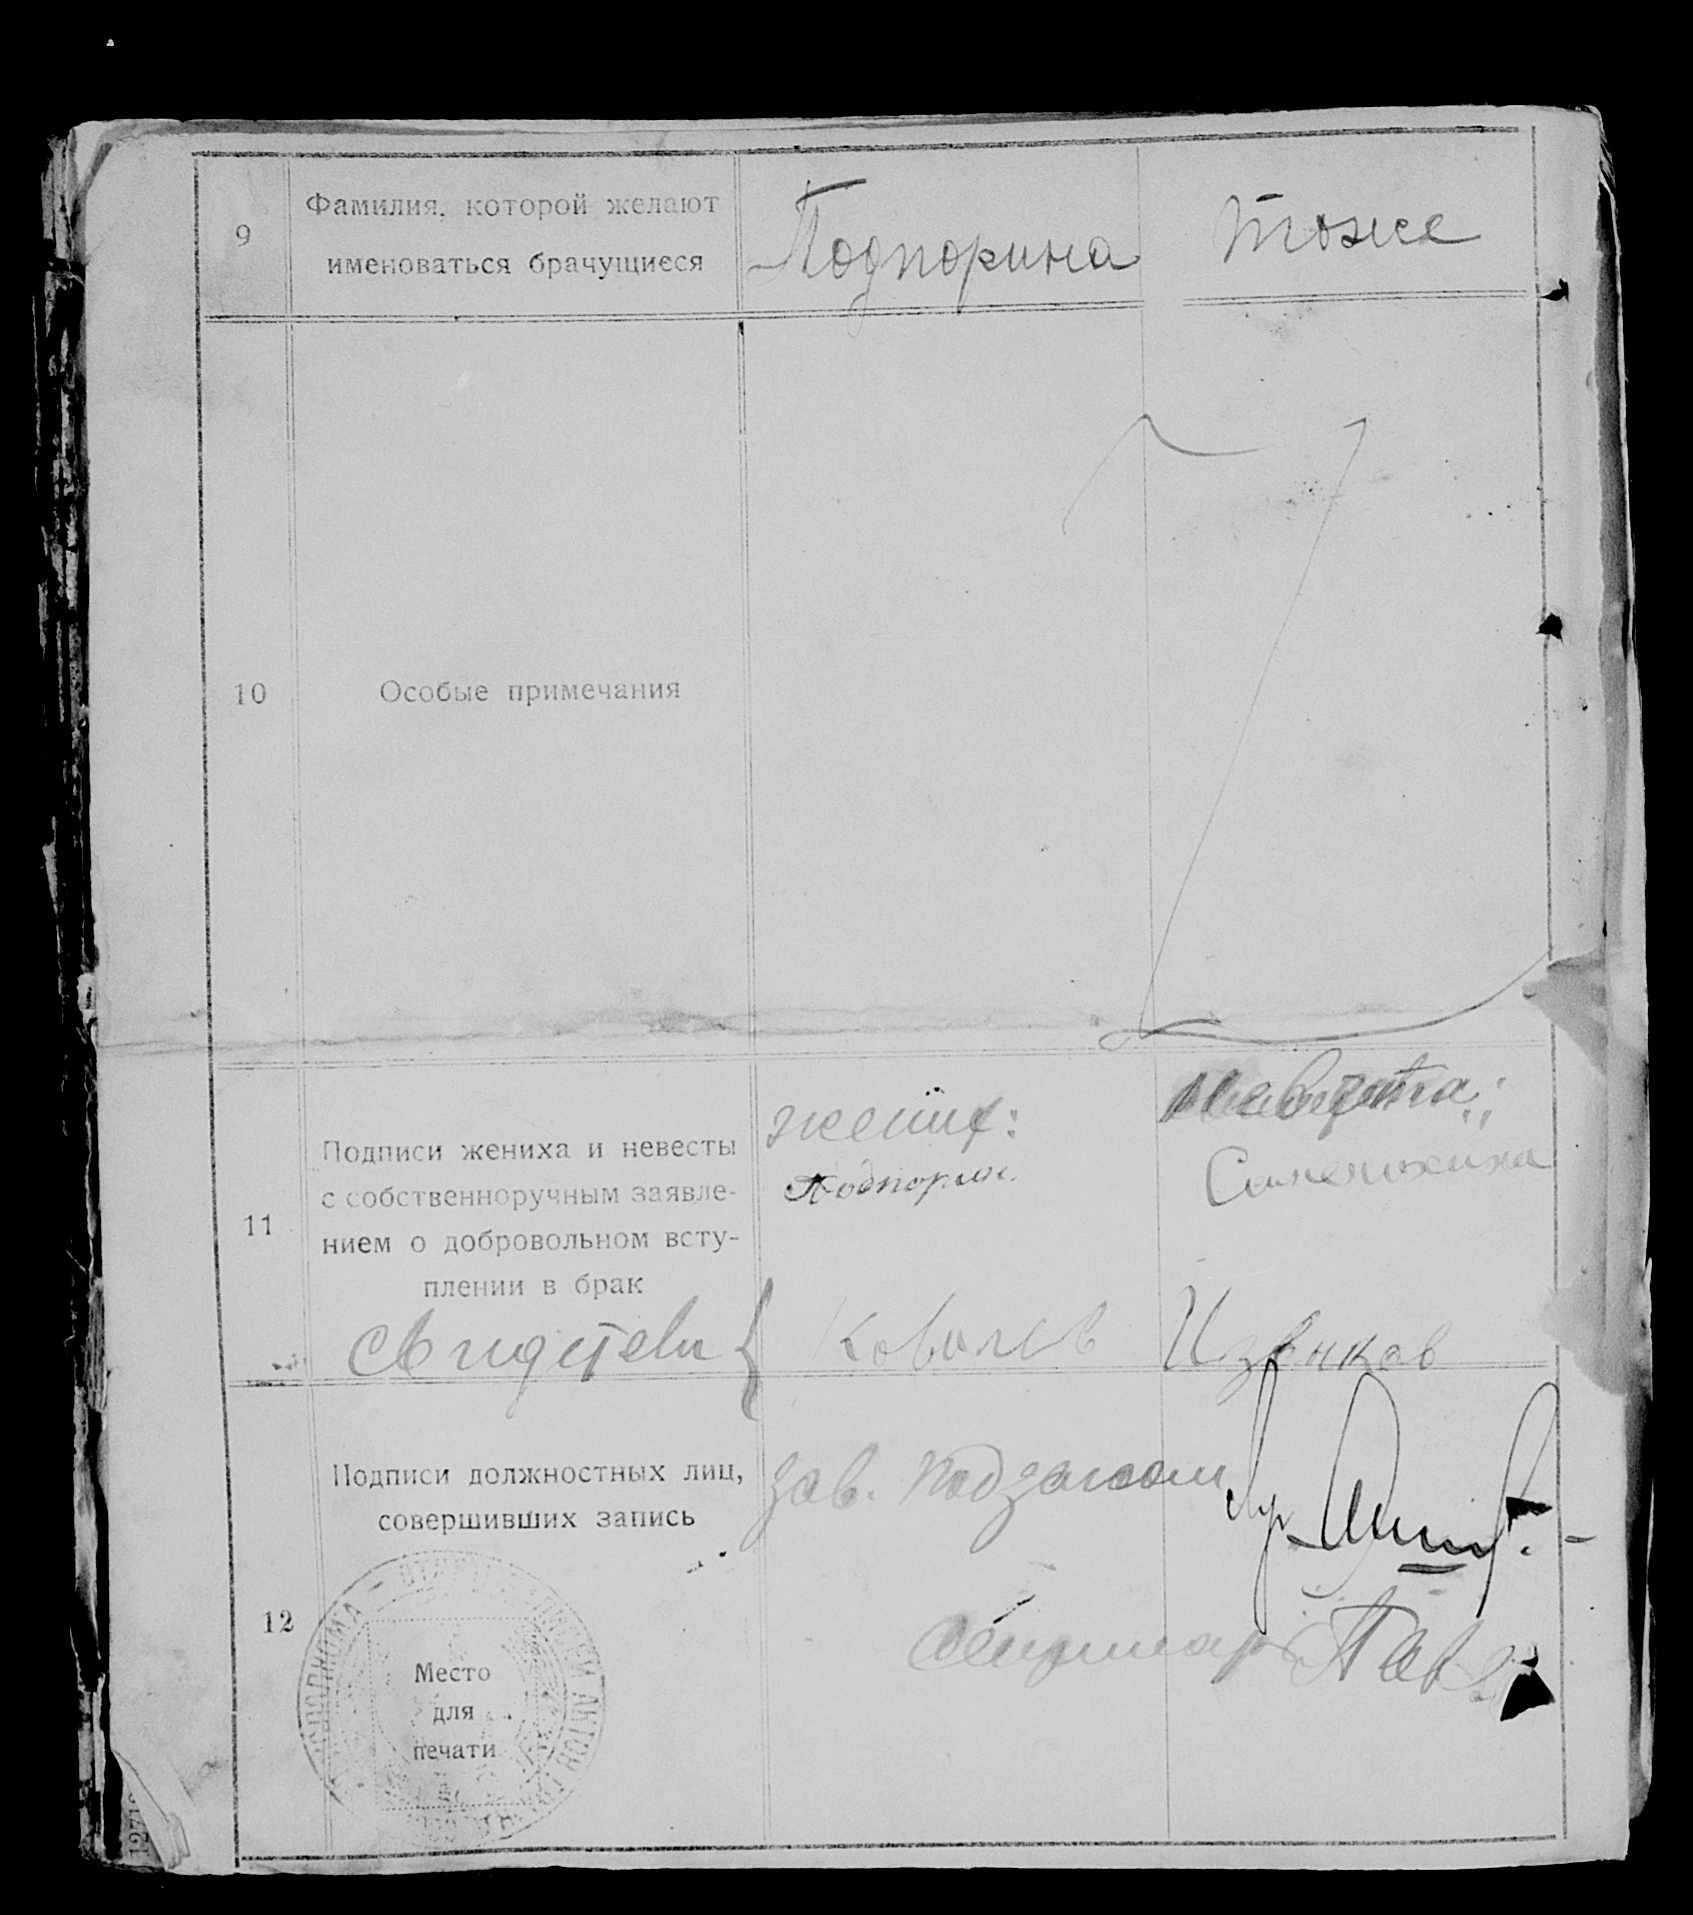 9
Фамилия, которой желают
именоваться брачущиеся
Подпорина
тоже
10
Особые примечания
11
Подписи жениха и невесты
с собственноручным заявле-
нием о добровольном всту-
плении в брак
жених:
Подпорин.
невеста:
Синепихина
свидетели {
Ковалев
12
Подписи должностных лиц,
совершивших запись
зав. подзагсом
Место
для
печати